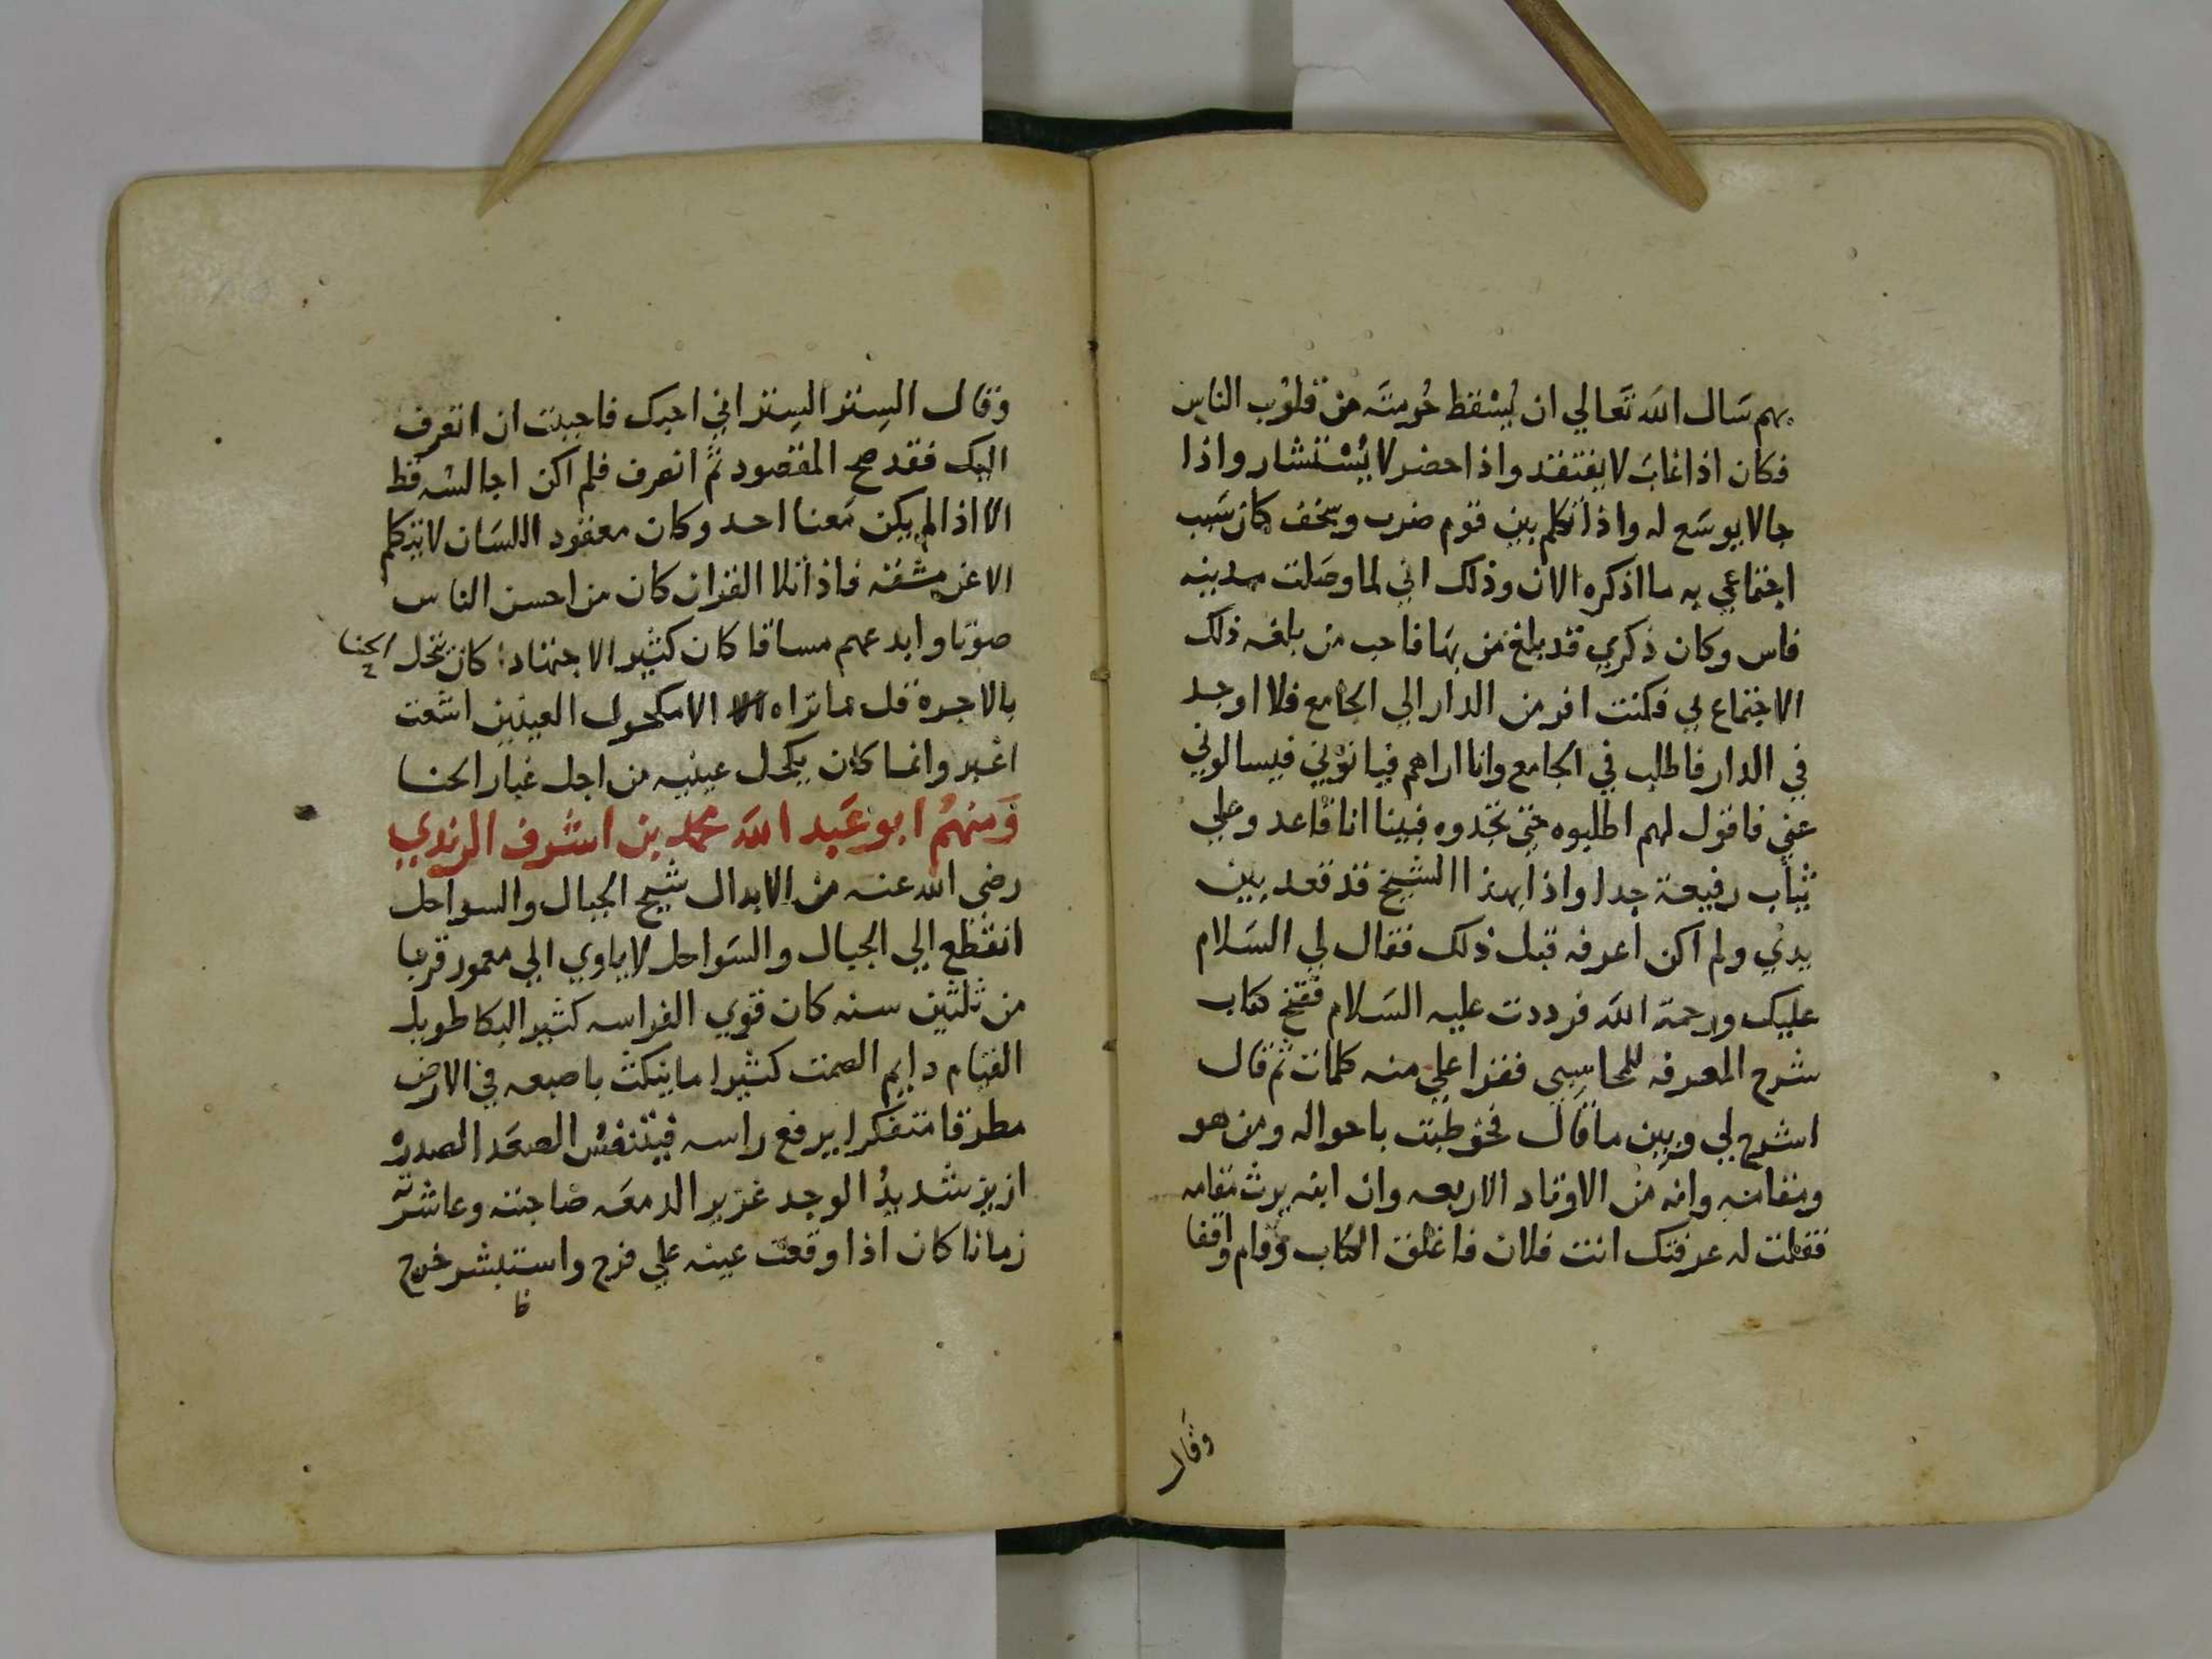 بهم سال الله تعالي ان يسقط حرمته من قلوب الناس
فكان اذا غاب لا يفتقد واذا حضر لا يستشار واذا
جا لا يوسع له واذا تكلم بين قوم ضرب وسخف كان سبب
اجتماعي به ما اذكره الان وذلك اني لما وصلت مدينه
فاس وكان ذكري قد بلغ من بها فاحب من بلغه ذلك
الاجتماع لي فكنت افر من الدار الي الجامع فلا اوجد
في الدار فاطلب في الجامع وانا اراهم فياتوني فيسالوني
عني فاقول لهم اطلبوه حتي تجدوه فبينا انا قاعد وعلي
ثياب رفيعة جدا واذا بهذا الشيخ قد قعد بين
يدي ولم اكن اعرفه قبل ذلك فقال لي السلام
عليك ورحمة الله فرددت عليه السلام ففتح كتاب
شرح المعرفه للمحاسبي فقرا علي منه كلمات ثم قال
اشرح لي وبين ما قال فخوطبت باحواله ومن هو
ومقامه وانه من الاوتاد الاربعه وان ابنه يرث مقامه
فقلت له عرفتك انت فلان فاغلق الكتاب وقام واقفا
وقال
وقال الستر الستر اني احبك فاحببت ان اتعرف
اليك فقد صح المقصود ثم انصرف فلم اكن اجالسه قط
الا اذا لم يكن معنا احد وكان معقود اللسان لا يتكلم
الا عن مشقه فاذا تلا القران كان من احسن الناس
صوتا وابدعهم مساقا كان كثير الاجتهاد كان ينخل الحنا
بالاجره قل ما تراه الا مكحول العينين اشعث
اغبر وانما كان يكحل عينيه من اجل غبار الحنا
ومنهم ابو عبد الله محمد بن اشرف الرندي
رضي الله عنه من الابدال شيخ الجبال والسواحل
انقطع الي الجبال والسواحل لا ياوي الي معمور قريبا
من ثلثين سنه كان قوي الفراسه كثير البكا طويل
القيام دايم الصمت كثيرا ما ينكث باصبعه في الارض
مطرقا متفكرا يرفع راسه فيتنفس الصعدا لصدره
ازيز شديد الوجد غزير الدمعه صاحبته وعاشرته
زمانا كان اذا وقعت عينه علي فرح واستبشر خرج
ظ